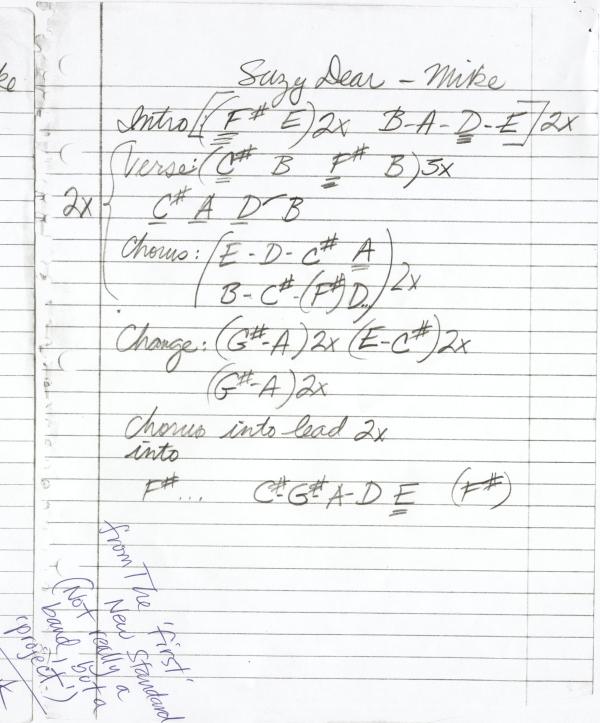 ke
Suzy Dear - Mike
Intro [: (F# E) 2x B-A-D-E] 2x
Verse: (C# B F# B) 3x
2x
C# A D B
Chorus: (E - D - C# A
B - C# - (F#) D..) 2x
Change: (G#-A) 2x (E-C#) 2x
(G#-A) 2x
Chorus into lead 2x
into
F#... C# G# A-D E (F#)
from The 'first'
New Standard
(Not really a
band, but a
'project'.)